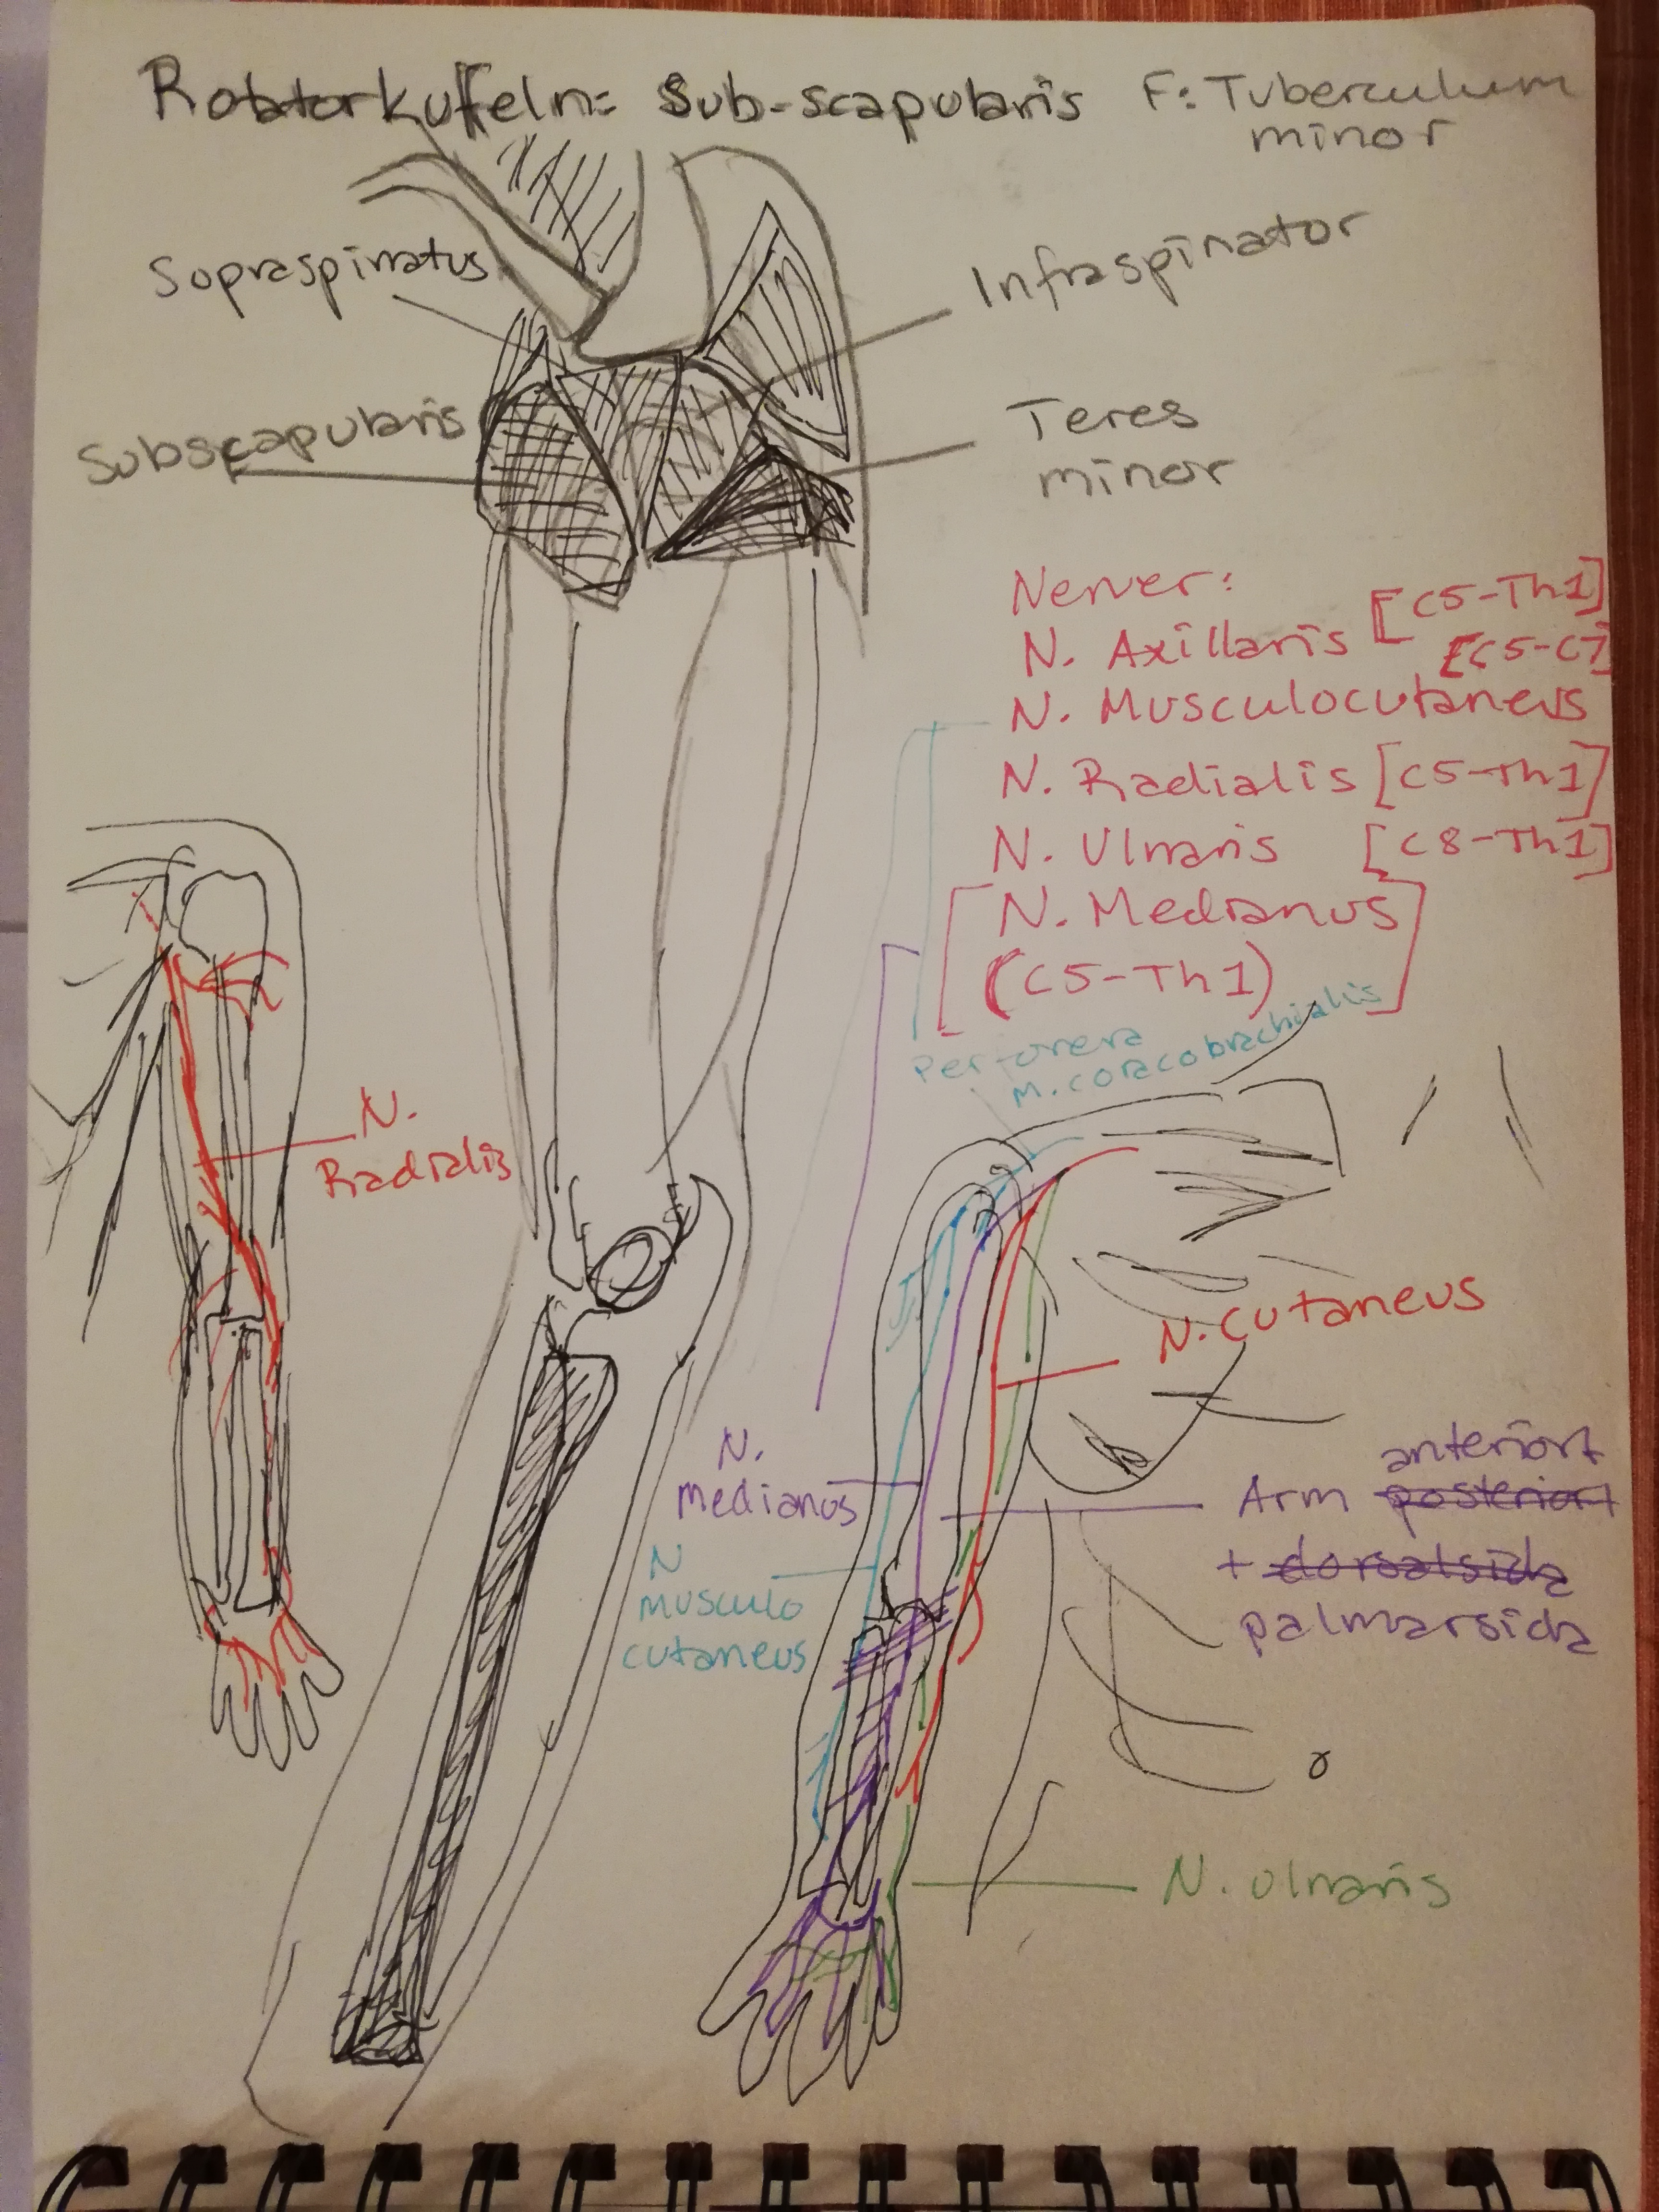 Rotatorkuffeln: Sub-scapularis F: Tuberculum
minor
Sopraspinatus
Infraspinator
Subscapularis
Teres
minor
Nerver:
N. Axillaris [C5-Th1]
[C5-C7]
N. Musculocutaneus
N. Radialis [C5-Th1]
N. Ulnaris [C8-Th1]
[N. Medianus
(C5-Th1)]
Perforera
M. coracobrachialis
N.
Radialis
N. cutaneus
N.
medianus
anteriort
Arm posteriort
+ dorsalsida
palmarsida
N
musculo
cutaneus
N. ulnaris